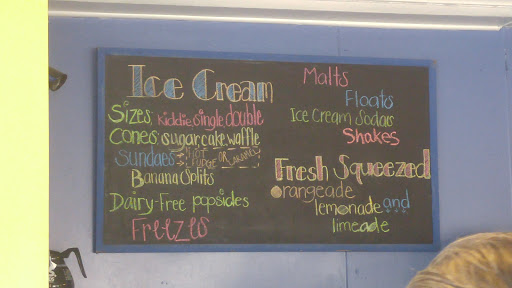 Ice Cream
Sizes: kiddie, single, double
Cones: sugar, cake, waffle
Sundaes: HOT FUDGE OR CARAMEL
Banana Splits
Dairy-Free popsicles
Freezes
Malts
Floats
Ice Cream Sodas
Shakes
Fresh Squeezed
orangeade
lemonade and
limeade